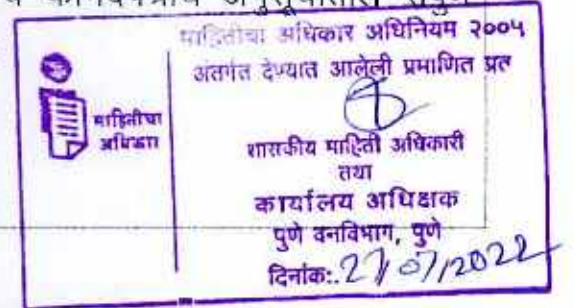 माहितीचा अधिकार अधिनियम २००५
अंतर्गत देण्यात आलेली प्रमाणित प्रत
माहितीचा
अधिकार
शासकीय माहिती अधिकारी
तथा
कार्यालय अधिक्षक
पुणे वनविभाग, पुणे
दिनांक:. 27/07/2022